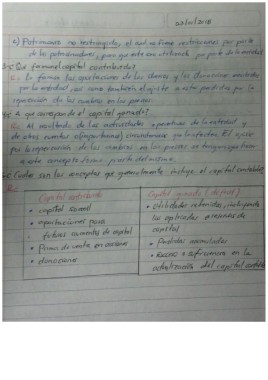 c) Patrimonio no restringido, el cual no tiene restricciones por parte
de los patrocinadores, para que este sea utilizado por parte de la entidad
¿Qué forma el capital contribuido?
R. Lo forman las aportaciones de los dueños y las donaciones recibidas
por la entidad, así como también el ajuste a estas partidas por la
repercusión de los cambios en los precios.
¿A que corresponde el capital ganado?
R. Al resultado de las actividades operativas de la entidad y
de otros eventos o circunstancias que la afecten. El ajuste
por la repercusión de los cambios en los precios
a este concepto forma parte del mismo.
¿Cuáles son los conceptos que generalmente incluye el capital contable?
R.
Capital contribuido
• capital social
• aportaciones para
futuros aumentos de capital
• Prima de venta en acciones
• donaciones
Capital ganado (déficit)
• Utilidades retenidas, incluyendo
las aplicadas a reservas de
capital
• Perdidas acumuladas
• Exceso o insuficiencia en la
actualización del capital contable